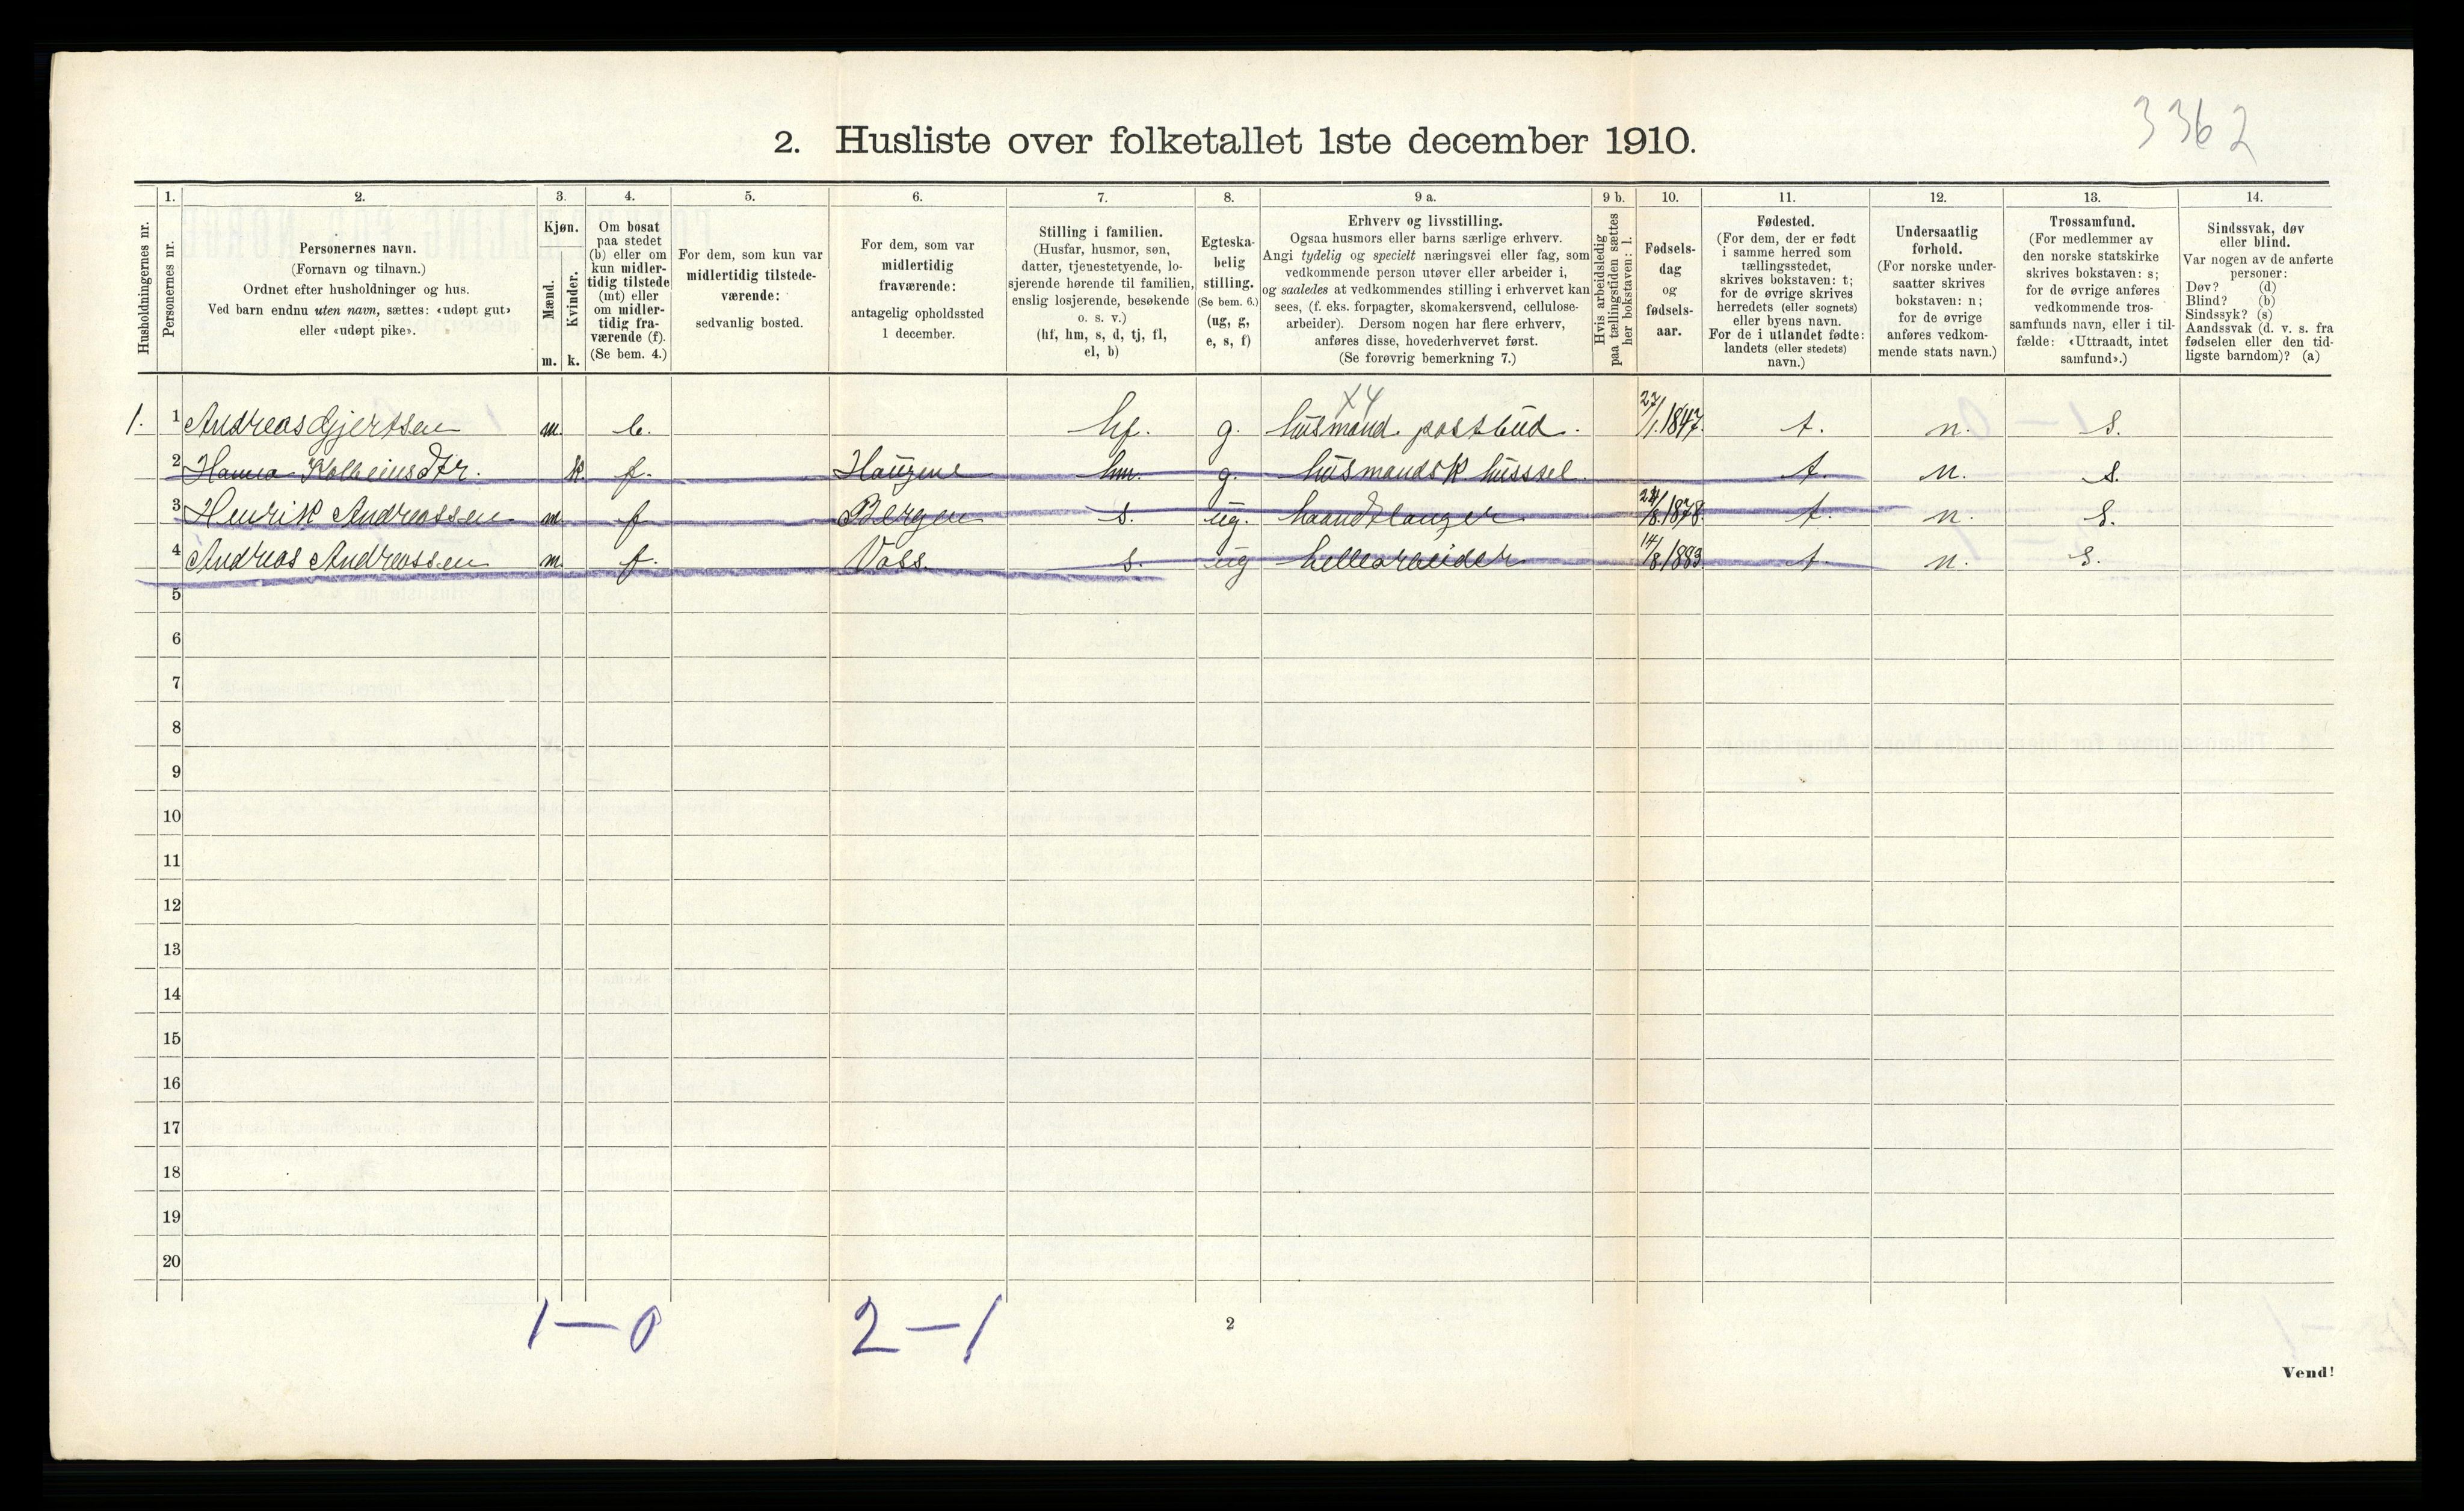 3362
2. Husliste over folketallet 1ste december 1910.
Husholdningernes nr.
1.
Personernes nr.
2.
Personernes navn.
(Fornavn og tilnavn.)
Ordnet efter husholdninger og hus.
Ved barn endnu uten navn, sættes: «udøpt gut»
eller «udøpt pike».
3.
Kjøn.
Mænd.
Kvinder.
m. k.
4.
Om bosat
paa stedet
(b) eller om
kun midler-
tidig tilstede
(mt) eller
om midler-
tidig fra-
værende (f).
(Se bem. 4.)
5.
For dem, som kun var
midlertidig tilstede-
værende:
sedvanlig bosted.
6.
For dem, som var
midlertidig
fraværende:
antagelig opholdssted
1 december.
7.
Stilling i familien.
(Husfar, husmor, søn,
datter, tjenestetyende, lo-
sjerende hørende til familien,
enslig losjerende, besøkende
o. s. v.)
(hf, hm, s, d, tj, fl,
el, b)
8.
Egteska-
belig
stilling.
(Se bem. 6.)
(ug, g,
e, s, f)
9 a.
Erhverv og livsstilling.
Ogsaa husmors eller barns særlige erhverv.
Angi tydelig og specielt næringsvei eller fag, som
vedkommende person utøver eller arbeider i,
og saaledes at vedkommendes stilling i erhvervet kan
sees, (f. eks. forpagter, skomakersvend, cellulose-
arbeider). Dersom nogen har flere erhverv,
anføres disse, hovederhvervet først.
(Se forøvrig bemerkning 7.)
9 b.
Hvis arbeidsledig
paa tællingstiden sættes
her bokstaven: l.
10.
Fødsels-
dag
og
fødsels-
aar.
11.
Fødested.
(For dem, der er født
i samme herred som
tællingsstedet,
skrives bokstaven: t;
for de øvrige skrives
herredets (eller sognets)
eller byens navn.
For de i utlandet fødte:
landets (eller stedets)
navn.)
12.
Undersaatlig
forhold.
(For norske under-
saatter skrives
bokstaven: n;
for de øvrige
anføres vedkom-
mende stats navn.)
13.
Trossamfund.
(For medlemmer av
den norske statskirke
skrives bokstaven: s;
for de øvrige anføres
vedkommende tros-
samfunds navn, eller i til-
fælde: «Uttraadt, intet
samfund».)
14.
Sindssvak, døv
eller blind.
Var nogen av de anførte
personer:
Døv? (d)
Blind? (b)
Sindssyk? (s)
Aandssvak (d. v. s. fra
fødselen eller den tid-
ligste barndom)? (a)
X4
1. 1 Andreas Gjertsen m. b. hf. g. husmand postbud. 27/1.1847. t. n. s.
2 Hanna Kolbeinsdtr. k. f. Haugene hm. g. husmandsk. hussel. t. n. s.
3 Henrik Andreassen m. f Bergen s. ug. haandlanger 24/8.1878. t. n. s.
4 Andreas Andreassen m. f. Voss. s. ug hellearbeider 14/8.1883. t. n. s.
5
6
7
8
9
10
11
12
13
14
15
16
17
18
19
20
1—0 2—1
2
Vend!